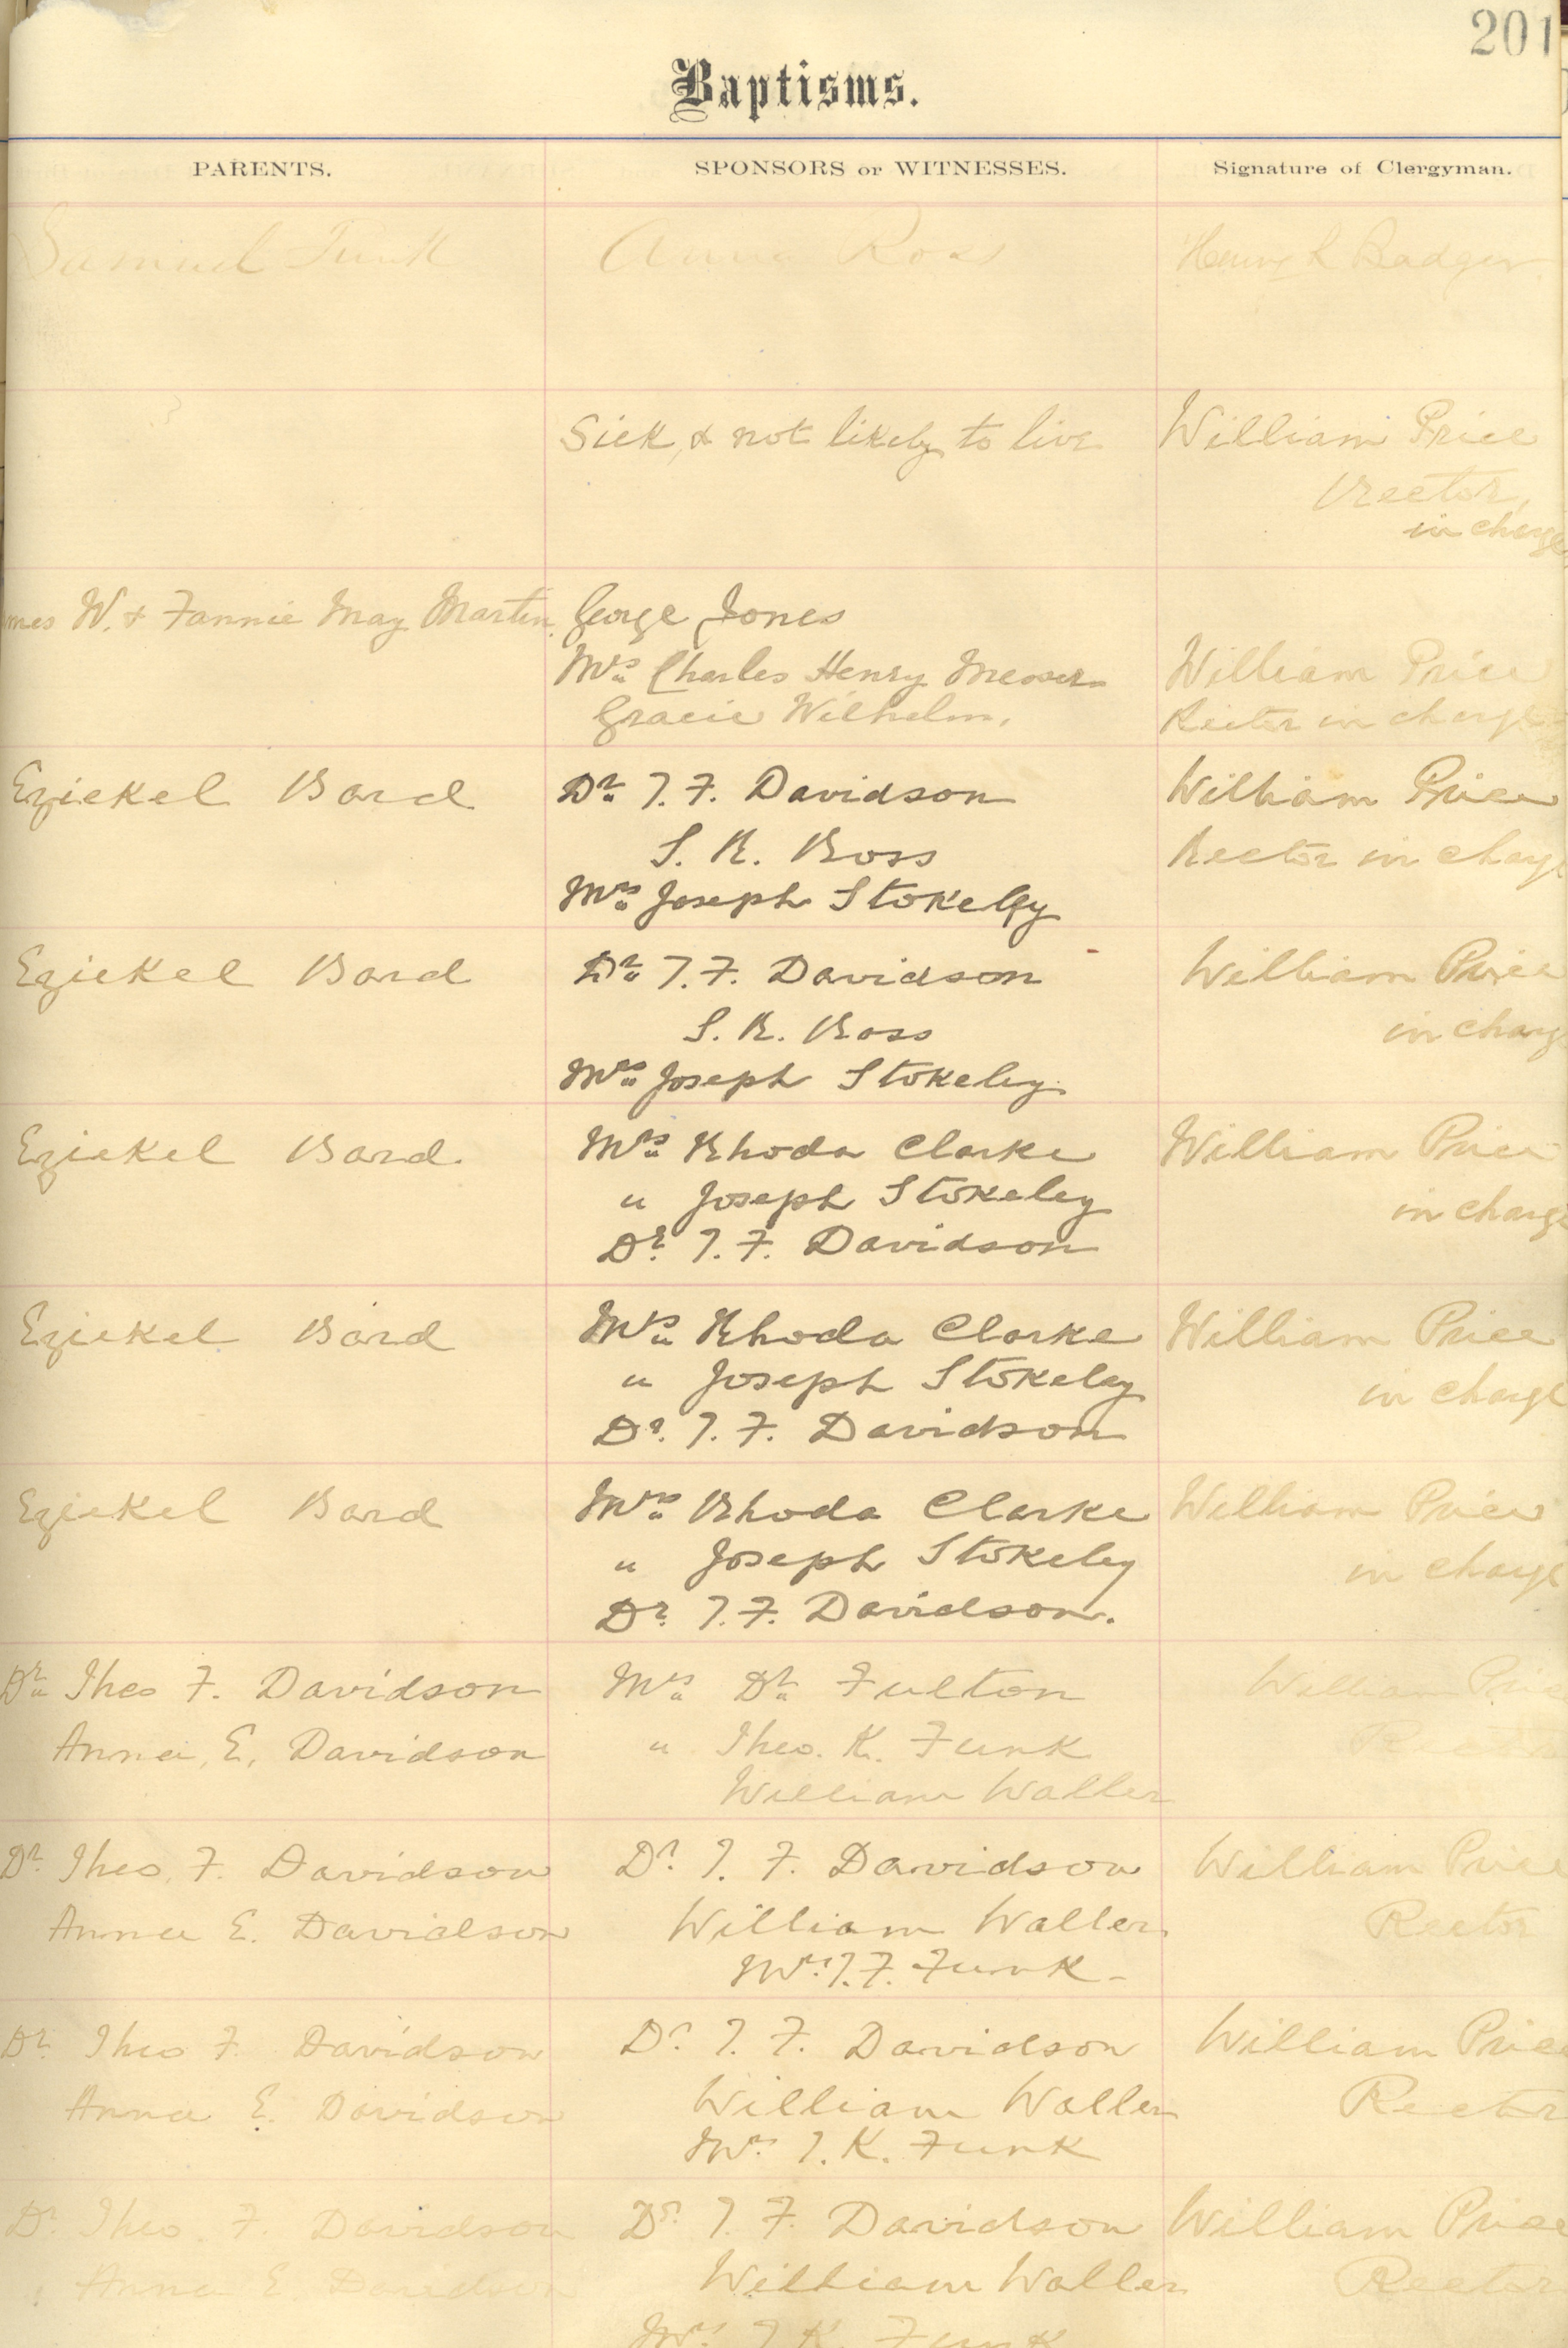 201
Baptisms.
PARENTS. SPONSORS or WITNESSES. Signature of Clergyman.
Samuel Funk Anna Ross Henry L Badger
Sick, & not likely to live William Price
Rector,
in charge
mes W. & Fannie May Martin. George Jones
Mrs Charles Henry William Price
Gracie Wilhelm. Rector in charge
Eziekel Bard Dr T. F. Davidson William Price
S. R. Ross Rector in charg
Mrs Joseph Stokely
Eziekel Bard Dr T. F. Davidson William Price
S. R. Ross in charg
Mrs Joseph Stokeley.
Eziekel Bard. Mrs Rhoda Clarke William Price
" Joseph Stokeley in charge
Dr. T. F. Davidson
Eziekel Bard Mrs Rhoda Clarke William Price
" Joseph Stokeley in charge
Dr. T. F. Davidson
Eziekel Bard Mrs Rhoda Clarke William Price
" Joseph Stokeley in charge
Dr. T. F. Davidson.
Dr Theo F. Davidson Mrs Dr Fulton William Pric
Anna, E. Davidson " Theo. K. Funk Rector
William Waller
Dr. Theo. F. Davidson Dr. T. F. Davidson William Price
Anna E. Davidson William Waller Rector
Mrs. T. F. Funk -
Dr. Theo F. Davidson Dr. T. F. Davidson William Price
Anna E. Davidson William Waller Rector
Mrs. T. K. Funk
Dr. Theo. F. Davidson Dr. T. F. Davidson William Price
Anna E Davidson William Waller Rector
Mrs T K. Funk